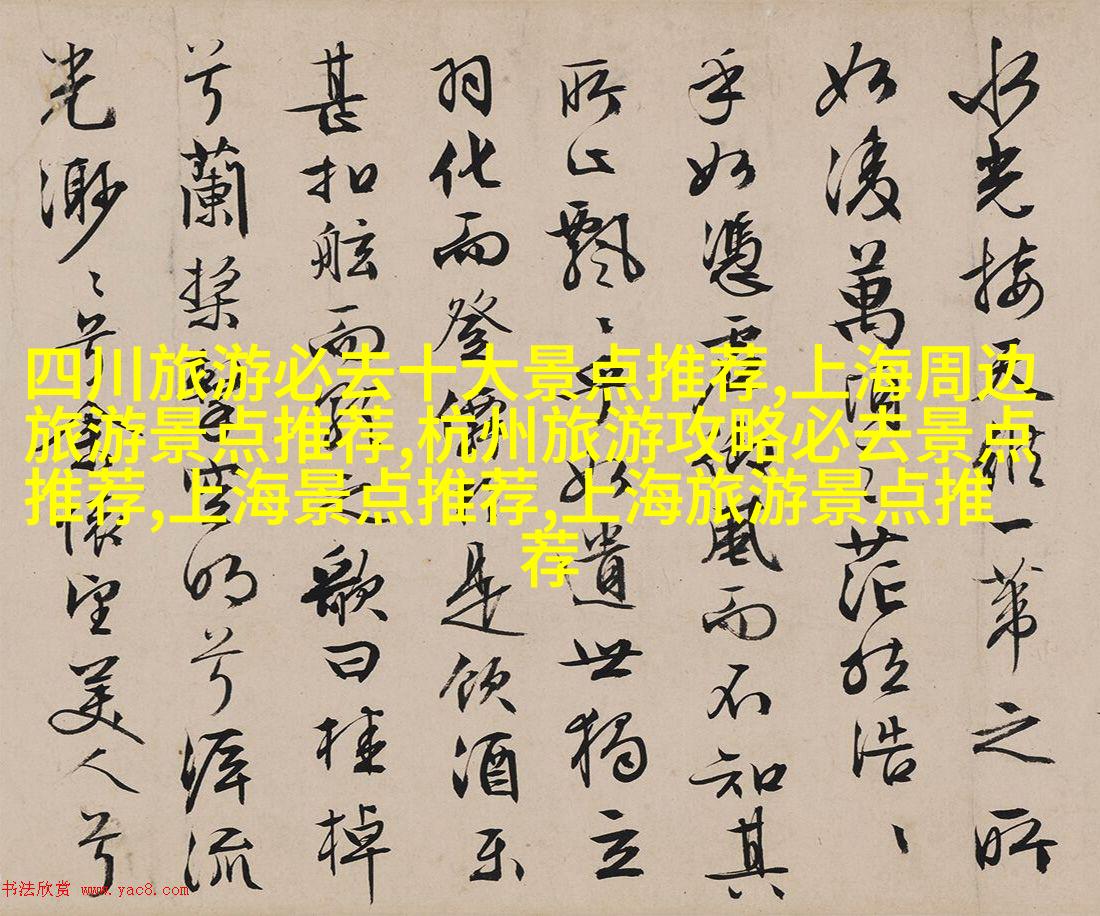 水光接天縱一葦之所
如凌萬頃之茫然浩〻
乎如憑虛御風而不知其
所止飄〻乎如遺世獨立
羽化而登僊是飲酒樂
甚扣舷而歌之歌曰桂棹
兮蘭槳擊空明兮泝流
光渺〻兮懷望美人兮
四川旅游必去十大景点推荐,上海周边
旅游景点推荐,杭州旅游攻略必去景点
推荐,上海景点推荐,上海旅游景点推
荐
书法欣赏 www.yac8.com